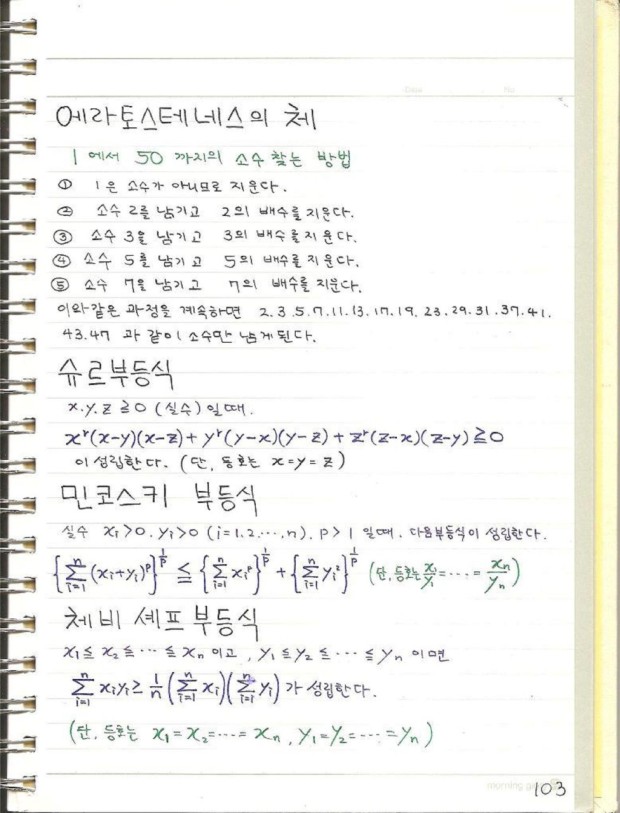 에라토스테네스의 체
1 에서 50 까지의 소수 찾는 방법
① 1은 소수가 아니므로 지운다.
② 소수 2를 남기고 2의 배수를 지운다.
③ 소수 3을 남기고 3의 배수를 지운다.
④ 소수 5를 남기고 5의 배수를 지운다.
⑤ 소수 7을 남기고 7의 배수를 지운다.
이와같은 과정을 계속하면 2.3.5.7.11.13.17.19.23.29.31.37.41.
43.47 과 같이 소수만 남게된다.
슈르부등식
x.y.z ≧ 0 (실수) 일때.
xʳ(x-y)(x-z) + yʳ(y-x)(y-z) + zʳ(z-x)(z-y) ≧ 0
이 성립한다. (단, 등호는 x=y=z)
민코스키 부등식
실수 xᵢ>0. yᵢ>0 (i=1.2.…,n). p>1 일때. 다음부등식이 성립한다.
{∑ⁿᵢ₌₁(xᵢ+yᵢ)ᵖ}^(1/p) ≦ {∑ⁿᵢ₌₁xᵢᵖ}^(1/p) + {∑ⁿᵢ₌₁yᵢ²}^(1/p) (단, 등호는 x₁/y₁=⋯=xₙ/yₙ)
체비셰프 부등식
x₁≦ x₂≦ ⋯ ≦ xₙ 이고, y₁≦y₂≦ ⋯ ≦yₙ 이면
∑ⁿᵢ₌₁ xᵢyᵢ ≥ 1/n(∑ⁿᵢ₌₁ xᵢ)(∑ⁿᵢ₌₁ yᵢ) 가 성립한다.
(단, 등호는 x₁=x₂=⋯=xₙ, y₁=y₂=⋯=yₙ)
103